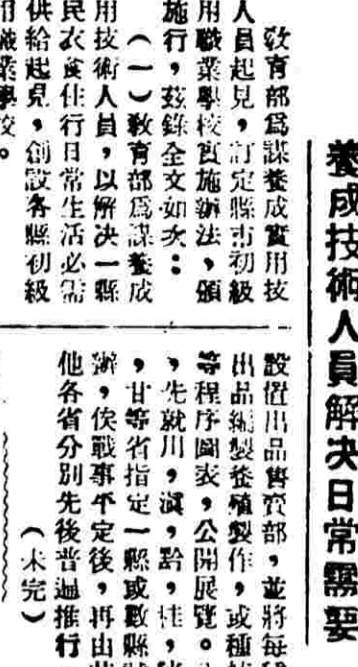 養成技術人員解決日常需要
敎育部爲謀養成實用技
人員起見,訂定縣市初級
用職業學校實施辦法,頒
施行,茲錄全文如次:
(一)敎育部爲謀養成
用技術人員,以解決一縣
民衣食住行日常生活必需
供給起見,創設各縣初級
用職業學校。
設置出品售賣部,並將每
出品編製養殖製作,或種
等程序圖表,公開展覽。
,先就川,滇,黔,桂,
,甘等省指定一縣或數縣
辦,俟戰事平定後,再由
他各省分別先後普遍推行
(未完)